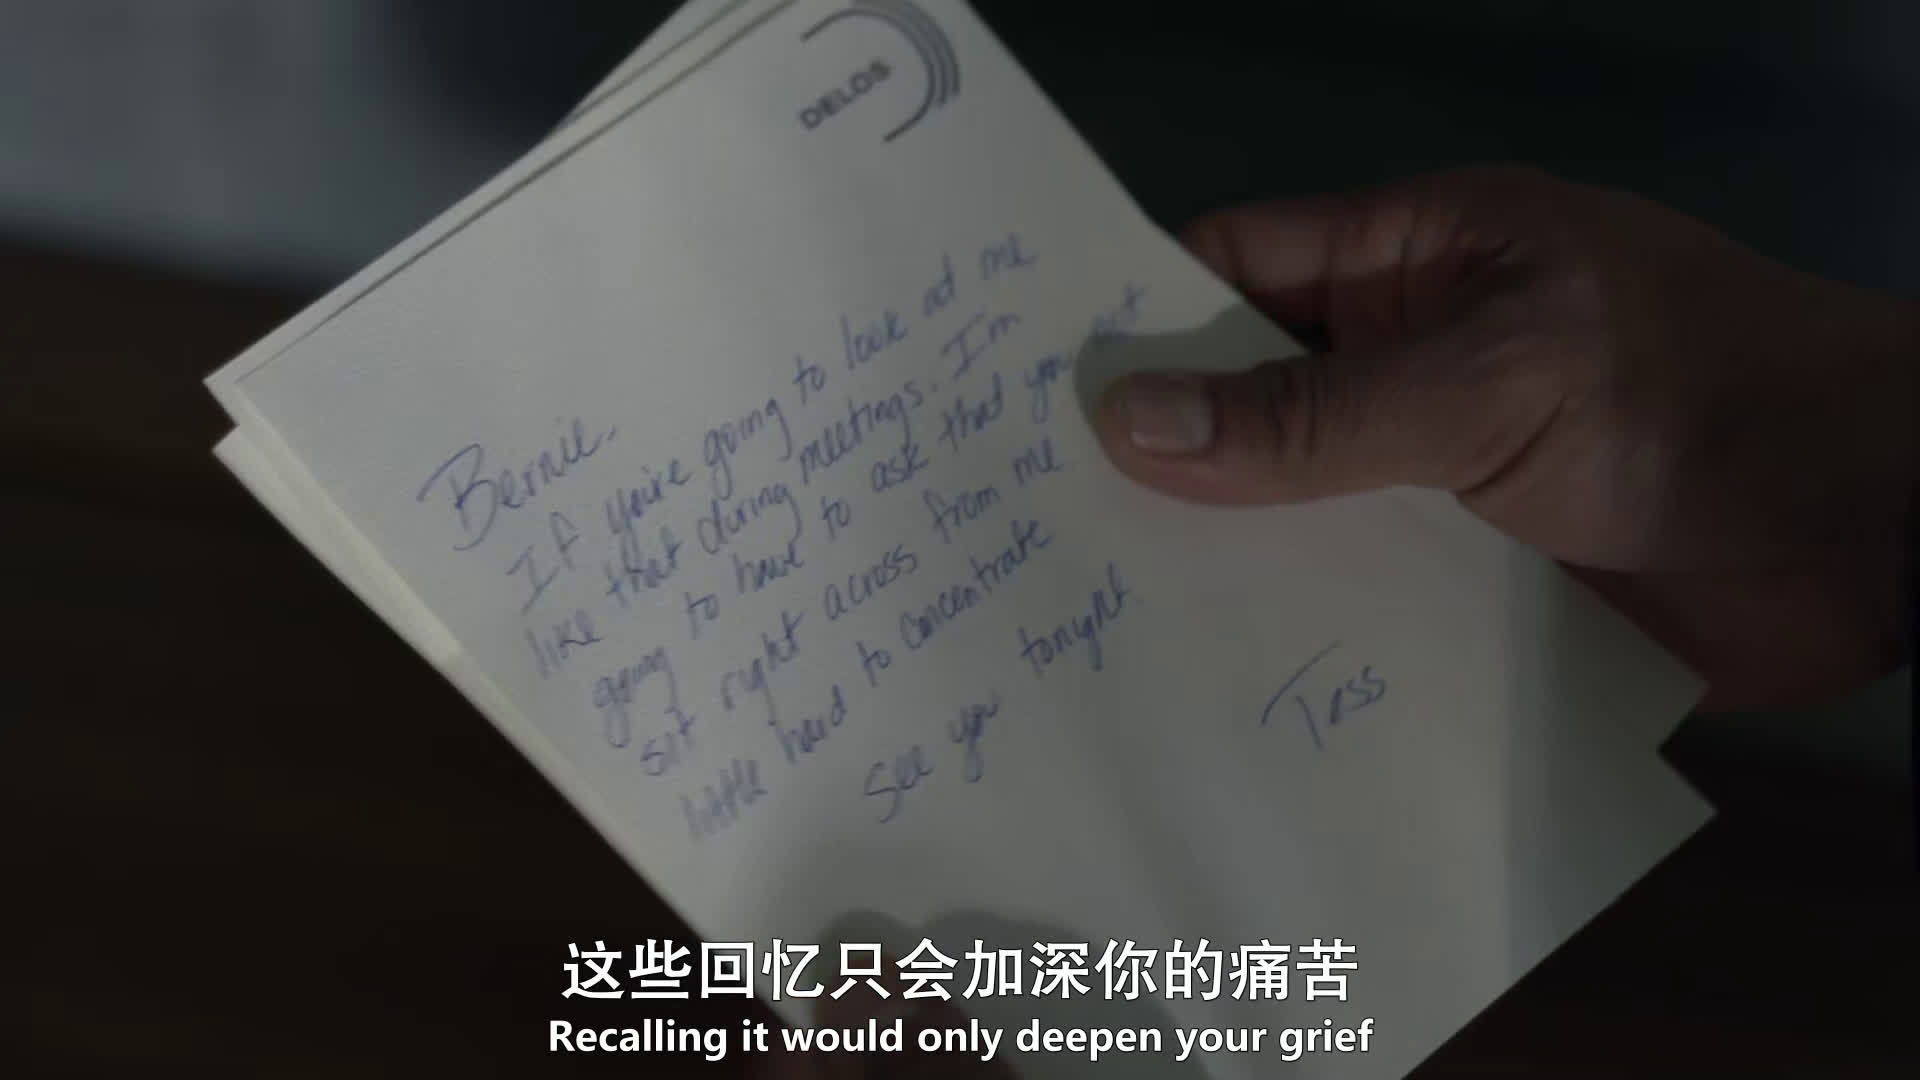 DELOS
Bernie,
If you're going to look at me
like that during meetings. I'm
going to have to ask that you not
sit right across from me
little hard to concentrate
See you tonight.
Tess
这些回忆只会加深你的痛苦
Recalling it would only deepen your grief